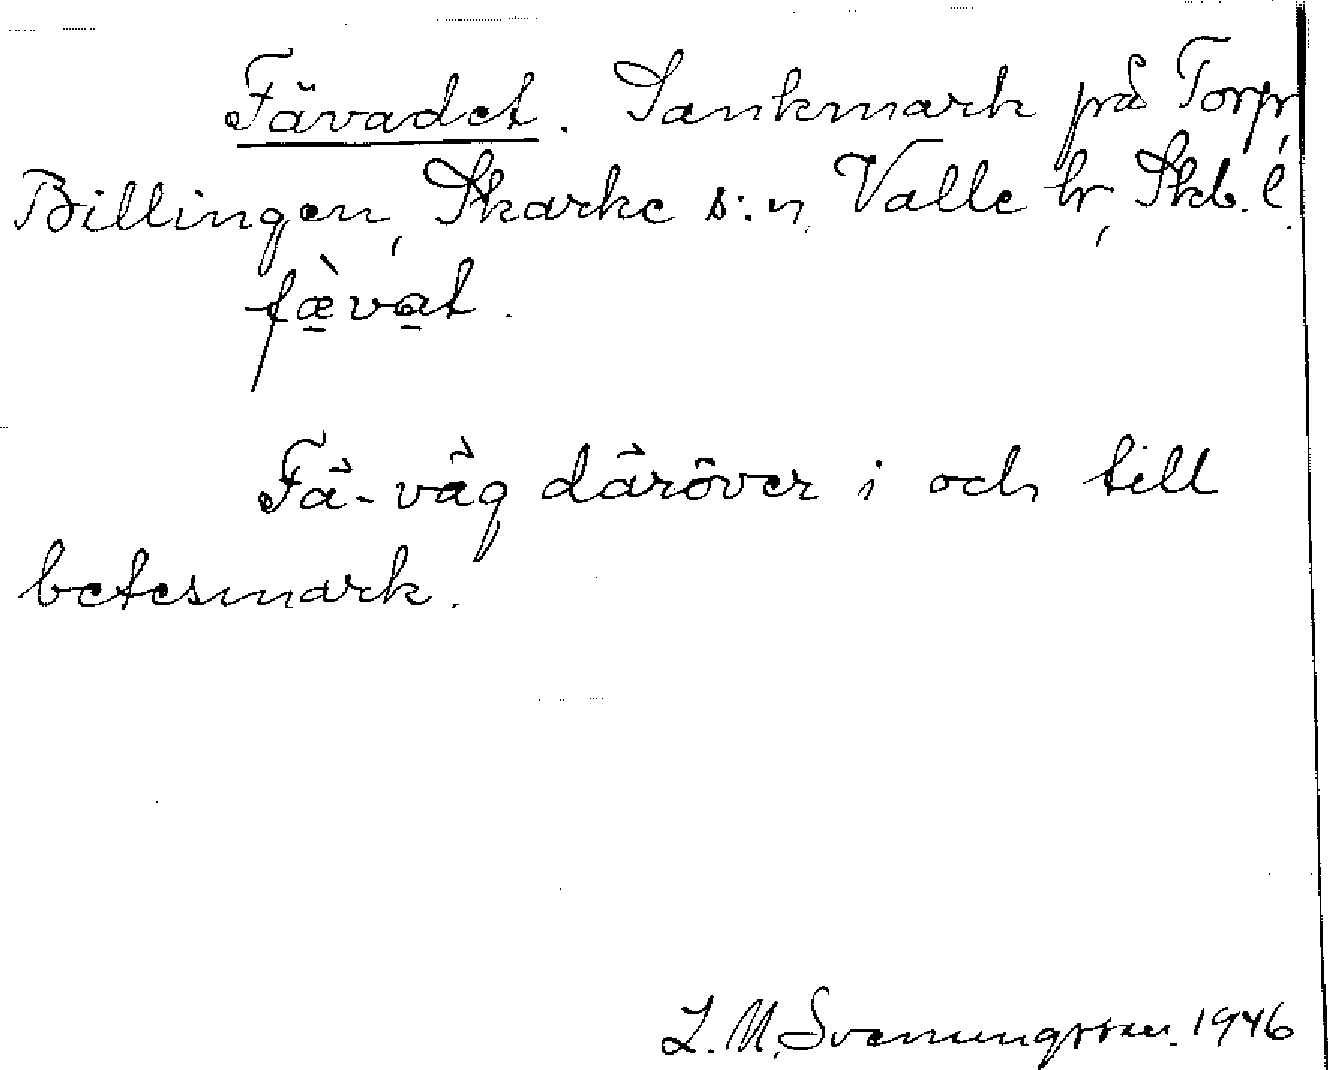 Fävadet. Sankmark på Torpr,
Billingen, Skarke s:n, Valle hr, Skb. l.
fæ̀vat.
Fä-väg däröver i och till
betesmark.
L. M. Svenungsson. 1946